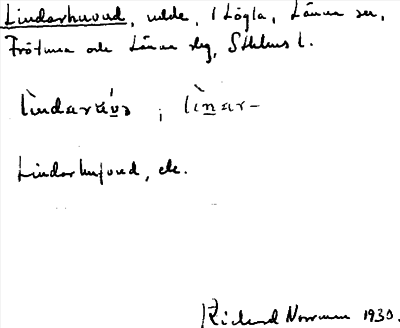 Lindarhuvud, udde, i Lögla, Länna sn,
Frötuna och Länna slg, Sthlms l.
lìndarǜvʉs ; lìnar-
Lindarhufvud, etc.
Richard Norrman 1930.